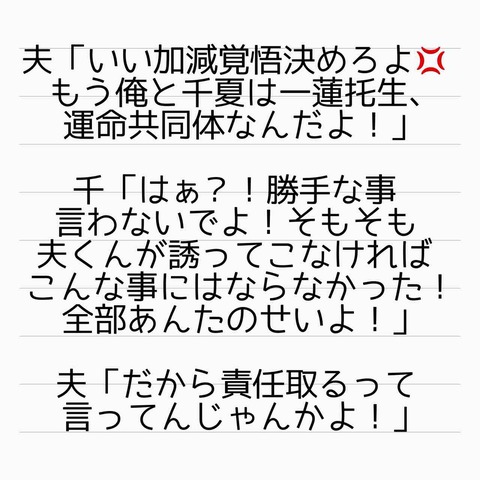 夫「いい加減覚悟決めろよ💢
もう俺と千夏は一蓮托生、
運命共同体なんだよ！」
千「はぁ？！勝手な事
言わないでよ！そもそも
夫くんが誘ってこなければ
こんな事にはならなかった！
全部あんたのせいよ！」
夫「だから責任取るって
言ってんじゃんかよ！」